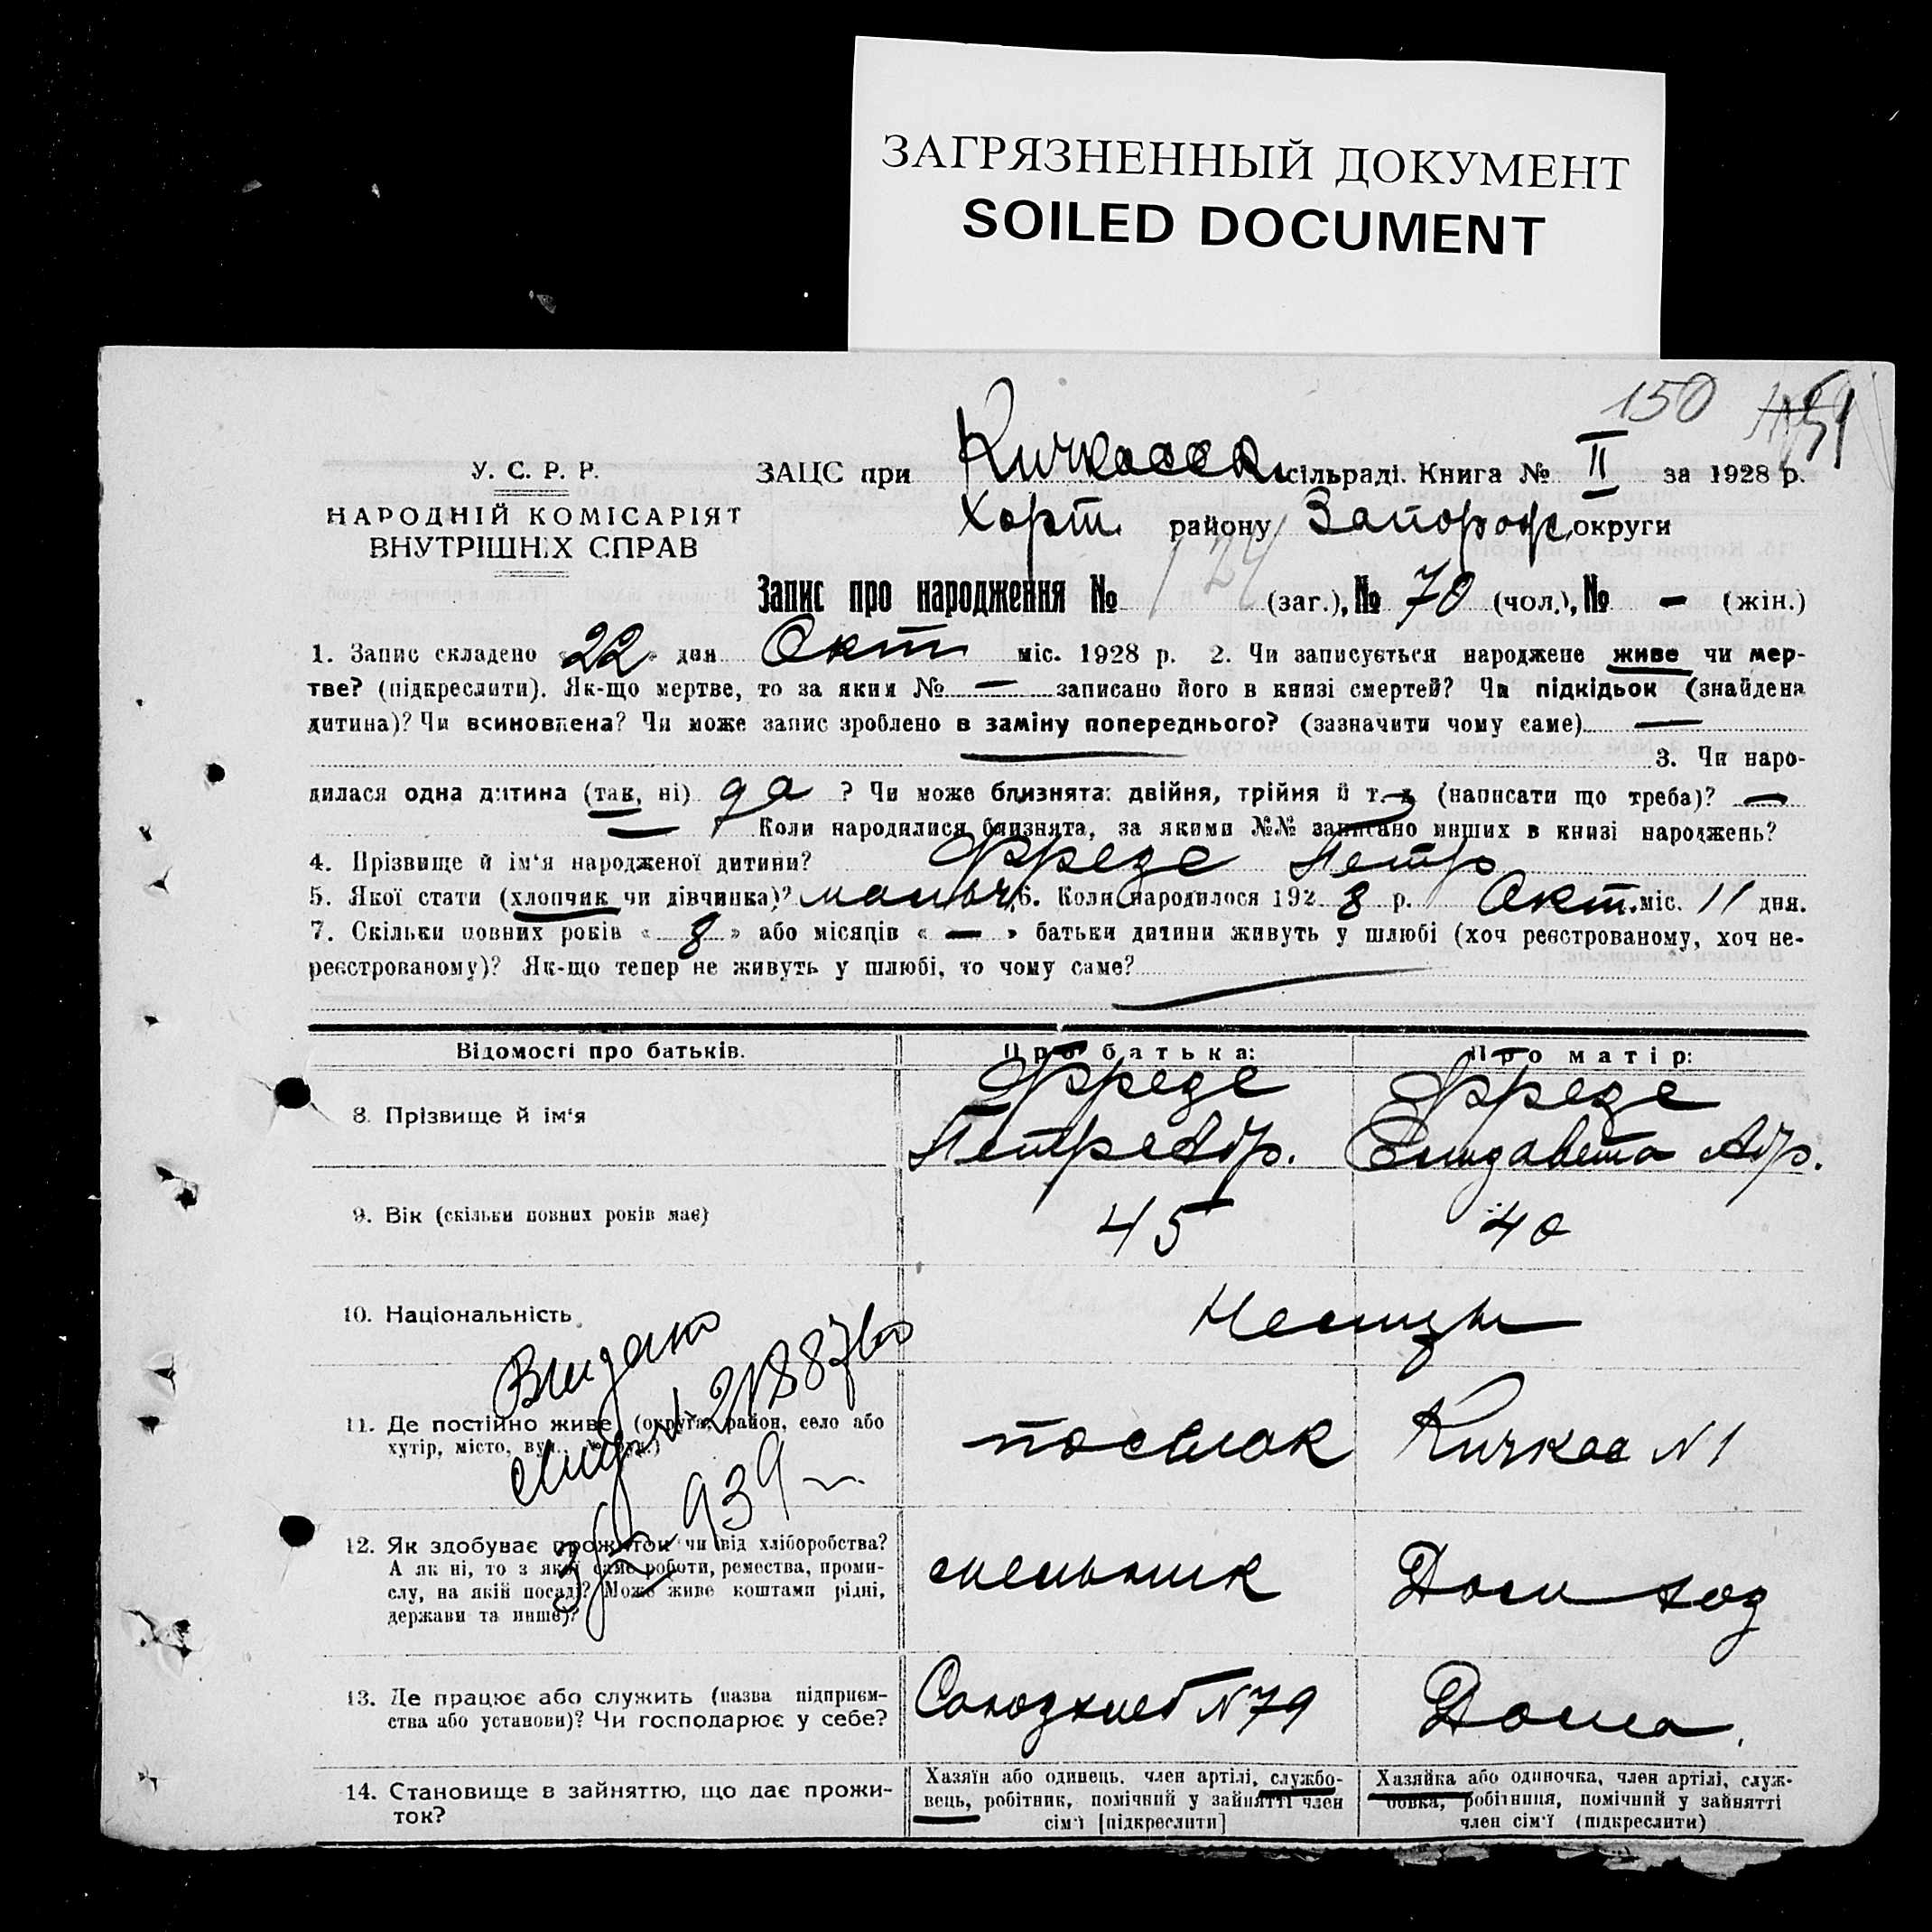 ЗАГРЯЗНЕННЫЙ ДОКУМЕНТ
SOILED DOCUMENT
150
51
У. С. Р. Р.
НАРОДНІЙ КОМІСАРІЯТ
ВНУТРІШНІХ СПРАВ
ЗАЦС при Кичкасск. сільраді. Книга № II за 1928 р.
Хорт. району Запорож. округи
Запис про народження № 124 (заг.), № 70 (чол.), № — (жін.)
1. Запис складено «22» дня Окт міс. 1928 р. 2. Чи записується народжене живе чи мер-
тве? (підкреслити). Як-що мертве, то за яким № — записано його в книзі смертей? Чи підкідьок (знайдена
дитина)? Чи всиновлена? Чи може запис зроблено в заміну попереднього? (зазначити чому саме) —
— 3. Чи наро-
дилася одна дитина (так, ні) да ? Чи може близнята: двійня, трійня й т. д. (написати що треба)? —
— Коли народилися близнята, за якими №№ записано инших в книзі народжень?
4. Прізвище й ім'я народженої дитини? Фрезе Петр
5. Якої стати (хлопчик чи дівчинка)? мальч. 6. Коли народилося 1928 р. Окт. міс. 11 дня.
7. Скільки повних років «8» або місяців «—» батьки дитини живуть у шлюбі (хоч реєстрованому, хоч не-
реєстрованому)? Як-що тепер не живуть у шлюбі, то чому саме? —
Відомості про батьків. Про батька: Про матір:
8. Прізвище й ім'я Фрезе Петр Абр. Фрезе Елизавета Абр.
9. Вік (скільки повних років має) 45 40
10. Національність Немцы
Видано
939
11. Де постійно живе (округа, район, село або
хутір, місто, вул., № буд.) поселок Кичкас N 1
12. Як здобуває прожиток чи від хліборобства?
А як ні, то з якої саме роботи, ремества, проми-
слу, на якій посаді? Може живе коштами рідні,
держави та инше)? мельник Дом хоз
13. Де працює або служить (назва підприєм-
ства або установи)? Чи господарює у себе? Союзхлеб N 79 Дома.
14. Становище в зайняттю, що дає прожи-
ток?
Хазяїн або одинець, член артілі, службо-
вець, робітник, помічний у зайнятті член
сім'ї [підкреслити]
Хазяйка або одиночка, член артілі, служ-
бовка, робітниця, помічний у зайнятті
член сім'ї (підкреслити)